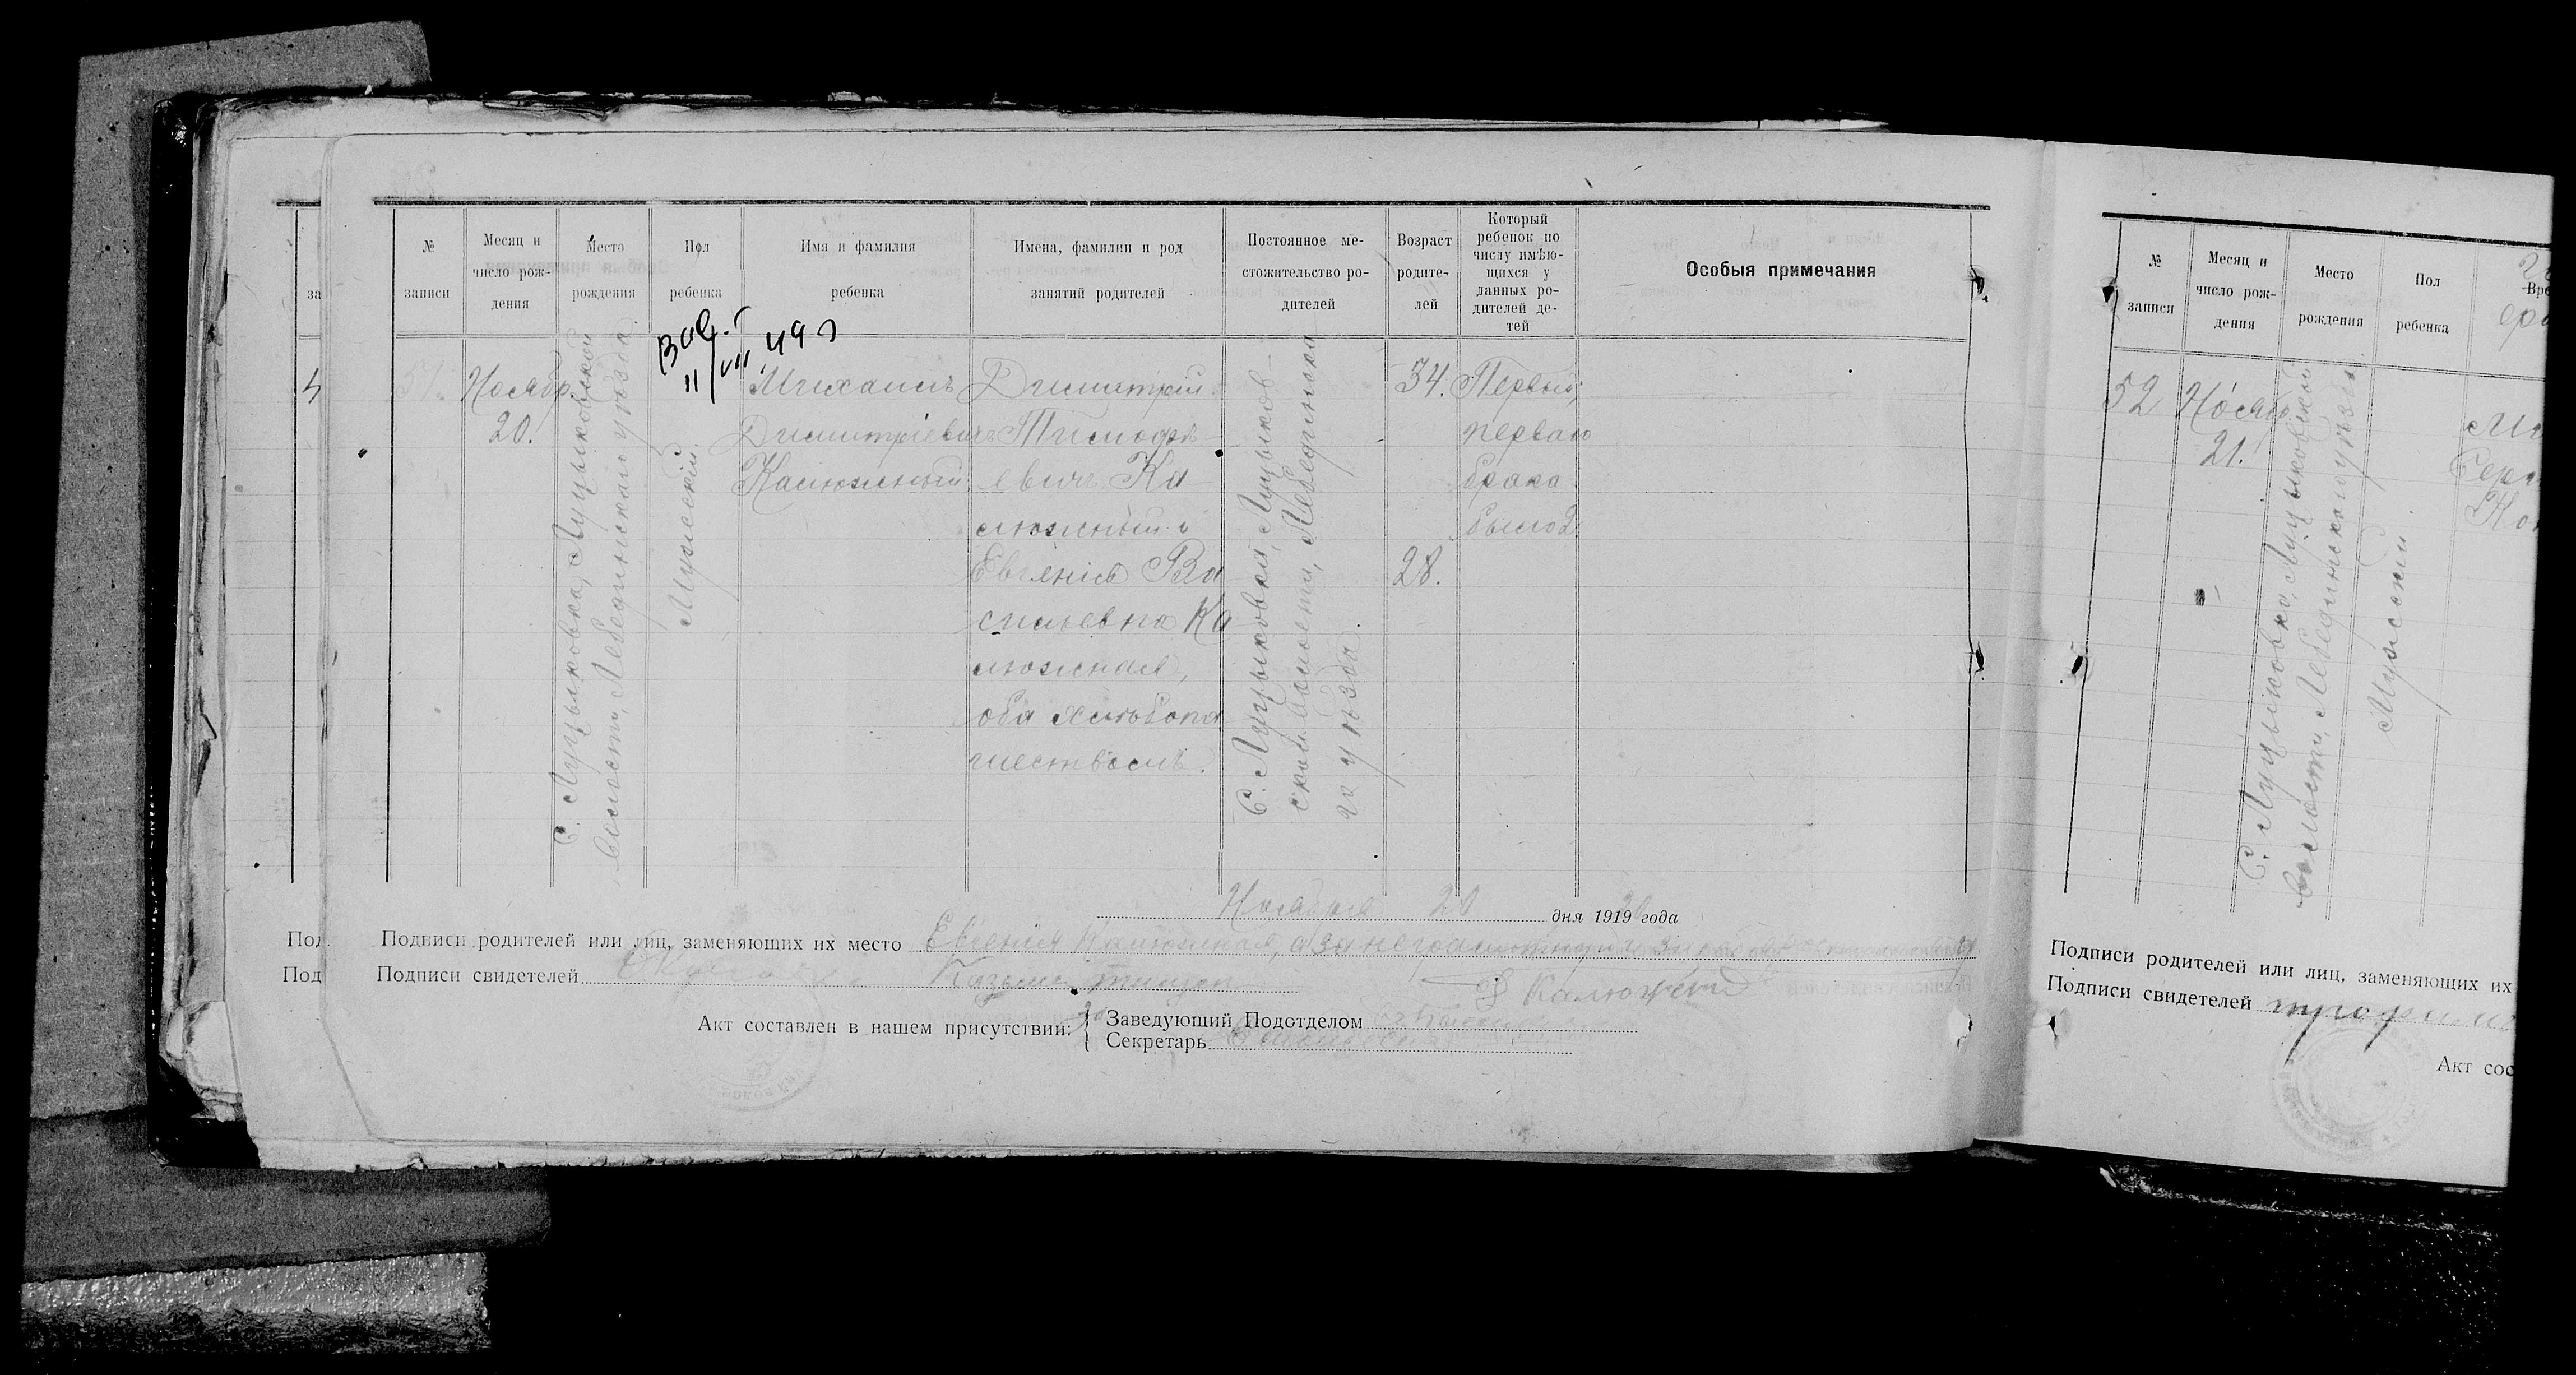 № записи
Месяц и число рож- дения
Место рождения
Пол ребенка
Имя и фамилия ребенка
Имена, фамилии и род занятий родителей
Постоянное ме- стожительство ро- дителей
Возраст родите- лей
Который ребенок по числу имѣю- щихся у данных ро- дителей де- тей
Особыя примечания
за
4
51.
Ноябр.
20.
С. Луцыковка, Луцыковской
волости, Лебединскаго уѣзда.
Мужескій.
11/VII 49
Михаилъ
Димитріевичъ
Калюжный.
Димитрій
Тимофѣ-
евичъ Ка-
люжный и
Евгенія Ва
сильевна Ка
люжная,
оба хлѣбопа
шествомъ.
С. Луцыковка, Луцыков-
ской волости, Лебединска-
го уѣзда.
34.
28.
Первый,
перваго
брака
было 2.
Ноября 20 дня 1919 года
Под
Подписи родителей или лиц, заменяющих их место Евгенія Калюжная, а за неграмотную
Под
Подписи свидетелей
Калюжный
Акт составлен в нашем присутствии:
Заведующий Подотделом
Секретарь
№ записи
Месяц и число рож- дения
Место рождения
Пол ребенка
52
Ноябр.
21.
С. Луцыковка, Луцыковской
волости, Лебединскаго уѣзда.
Мужеский.
Подписи родителей или лиц, заменяющих их
Подписи свидетелей
Акт сос